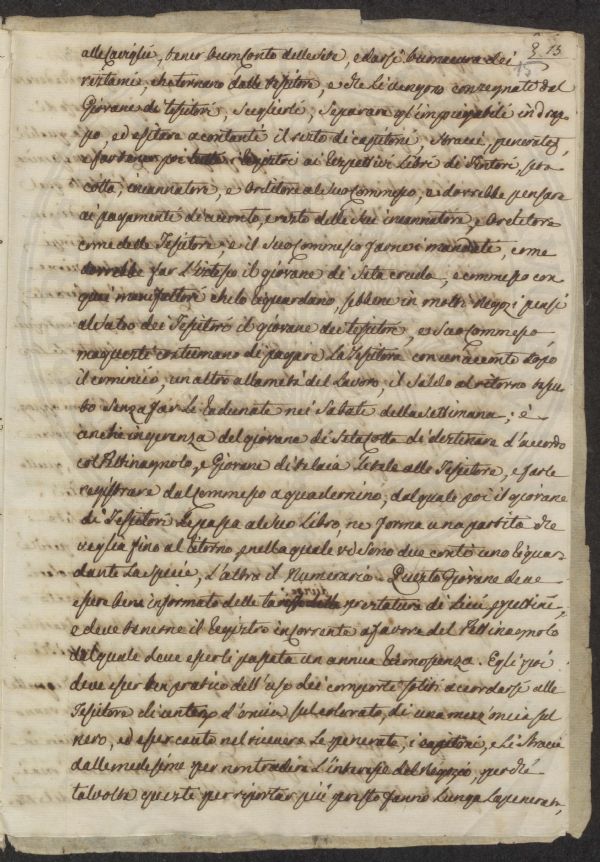 9 13
15
alle Caviglie, tener buon Conto delle Sete, e darsi buona cura dei
restami, che tornano dalle tessitore, e che li vengono consegnati dal
Giovane de' tessitori, sceglierli, separare gl'impiegabili in drap-
po, ed esitare a contanti il resto di capitoni, stracci, penerate,
e far tener poi Registri ai Respettivi Libri di Tintori, seta
cotta, incannatore, e Orditore al suo Commesso, e dovrebbe pensare
ai pagamenti di acconto, e resto delle sue incannatore, e Orditore
come delle Tessitore; e il suo Commesso farne i mandati, come
dovrebbe far l'istesso il giovane di Seta cruda, e commesso con
quei manifattori che lo riguardano, sebbene in molti Negozi pensi
al Saldo dei Tessitori il giovane dei tessitori, e suo Commesso
ma questi costumano di pagare la Tessitora con un acconto dopo
il cominciò, un altro alla metà del Lavoro, il Saldo al ritorno tessu-
to senza far le Radunate nei Sabati della Settimana; è
anche ingerenza del giovane di Seta cotta di destinare d'accordo
col Pettinagnolo, e Giovane di telaia le tele alle Tessitore, e farle
registrare dal Commesso a quadernino; dal quale poi il giovane
di Tessitori le passa al suo Libro, ne forma una partita che
veglia fino al ritorno, e nella quale vi sono due conti uno riguar-
dante la specie, l'altro il Numerario. Questo Giovane deve
essere bene informato delle prestature di Licci, e pettini,
e deve tenerne il Registro in corrente a favore del Pettinagnolo
dal quale deve esserli passata un annua Riconoscenza. Egli poi
deve esser ben pratico dell'uso dei comporti soliti accordarsi alle
Tessitore di un terzo d'oncia sul colorato, di una mezz'oncia sul
nero, ed esser cauto nel ricevere le penerate, i capitoni, e li stracci
dalle medesime per non tradire l'interesse del Negozio, perchè
talvolta queste per riportar più presto fanno lunga la penerata,